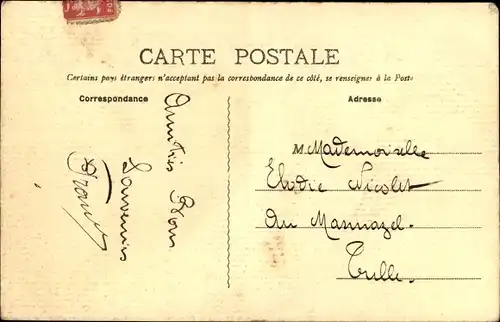 CARTE POSTALE
Certains pays étrangers n'acceptant pas la correspondance de ce côté, se renseigner à la Poste
Correspondance
Adresse
Amitiés Bons
Souvenirs
M Mademoiselle
Elodie Nicolet
Au Marmazel.
Tulle.